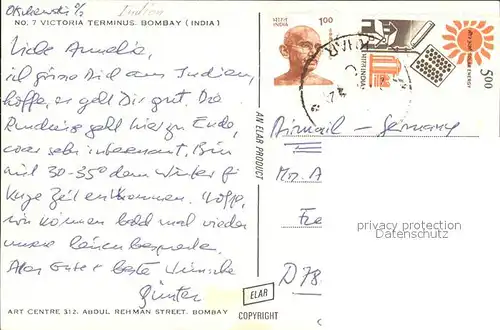 Indien
NO. 7 VICTORIA TERMINUS. BOMBAY (INDIA)
Liebe Amalia,
ich grüsse Dich aus Indien,
hoffe, es geht Dir gut. Die
Rundreise geht hier zu Ende,
war sehr interessant. Bin
mit 30-35° dem Winter f.
kurze Zeit entkommen. Hoffe,
wir können bald mal wieder
unsere
Alles Gute + beste Wünsche
Günter
ART CENTRE 312. ABDUL REHMAN STREET. BOMBAY
AN ELAR PRODUCT
ELAR
COPYRIGHT
भारत INDIA
1.00
भारत INDIA
5.00
Airmail - Germany
privacy protection
Datenschutz
D 78